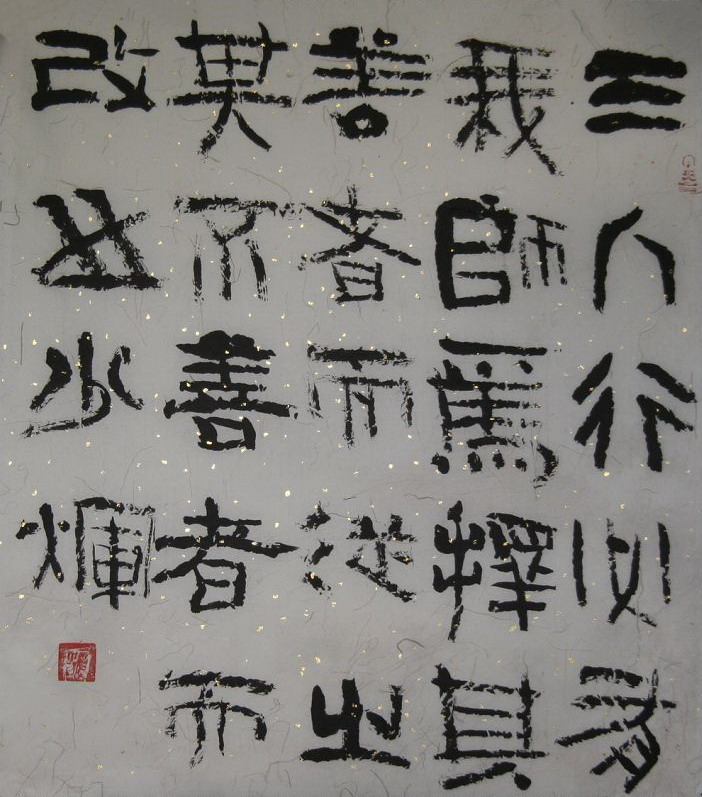 三人行必有
我師焉擇其
善者而從之
其不善者而
改之少煇